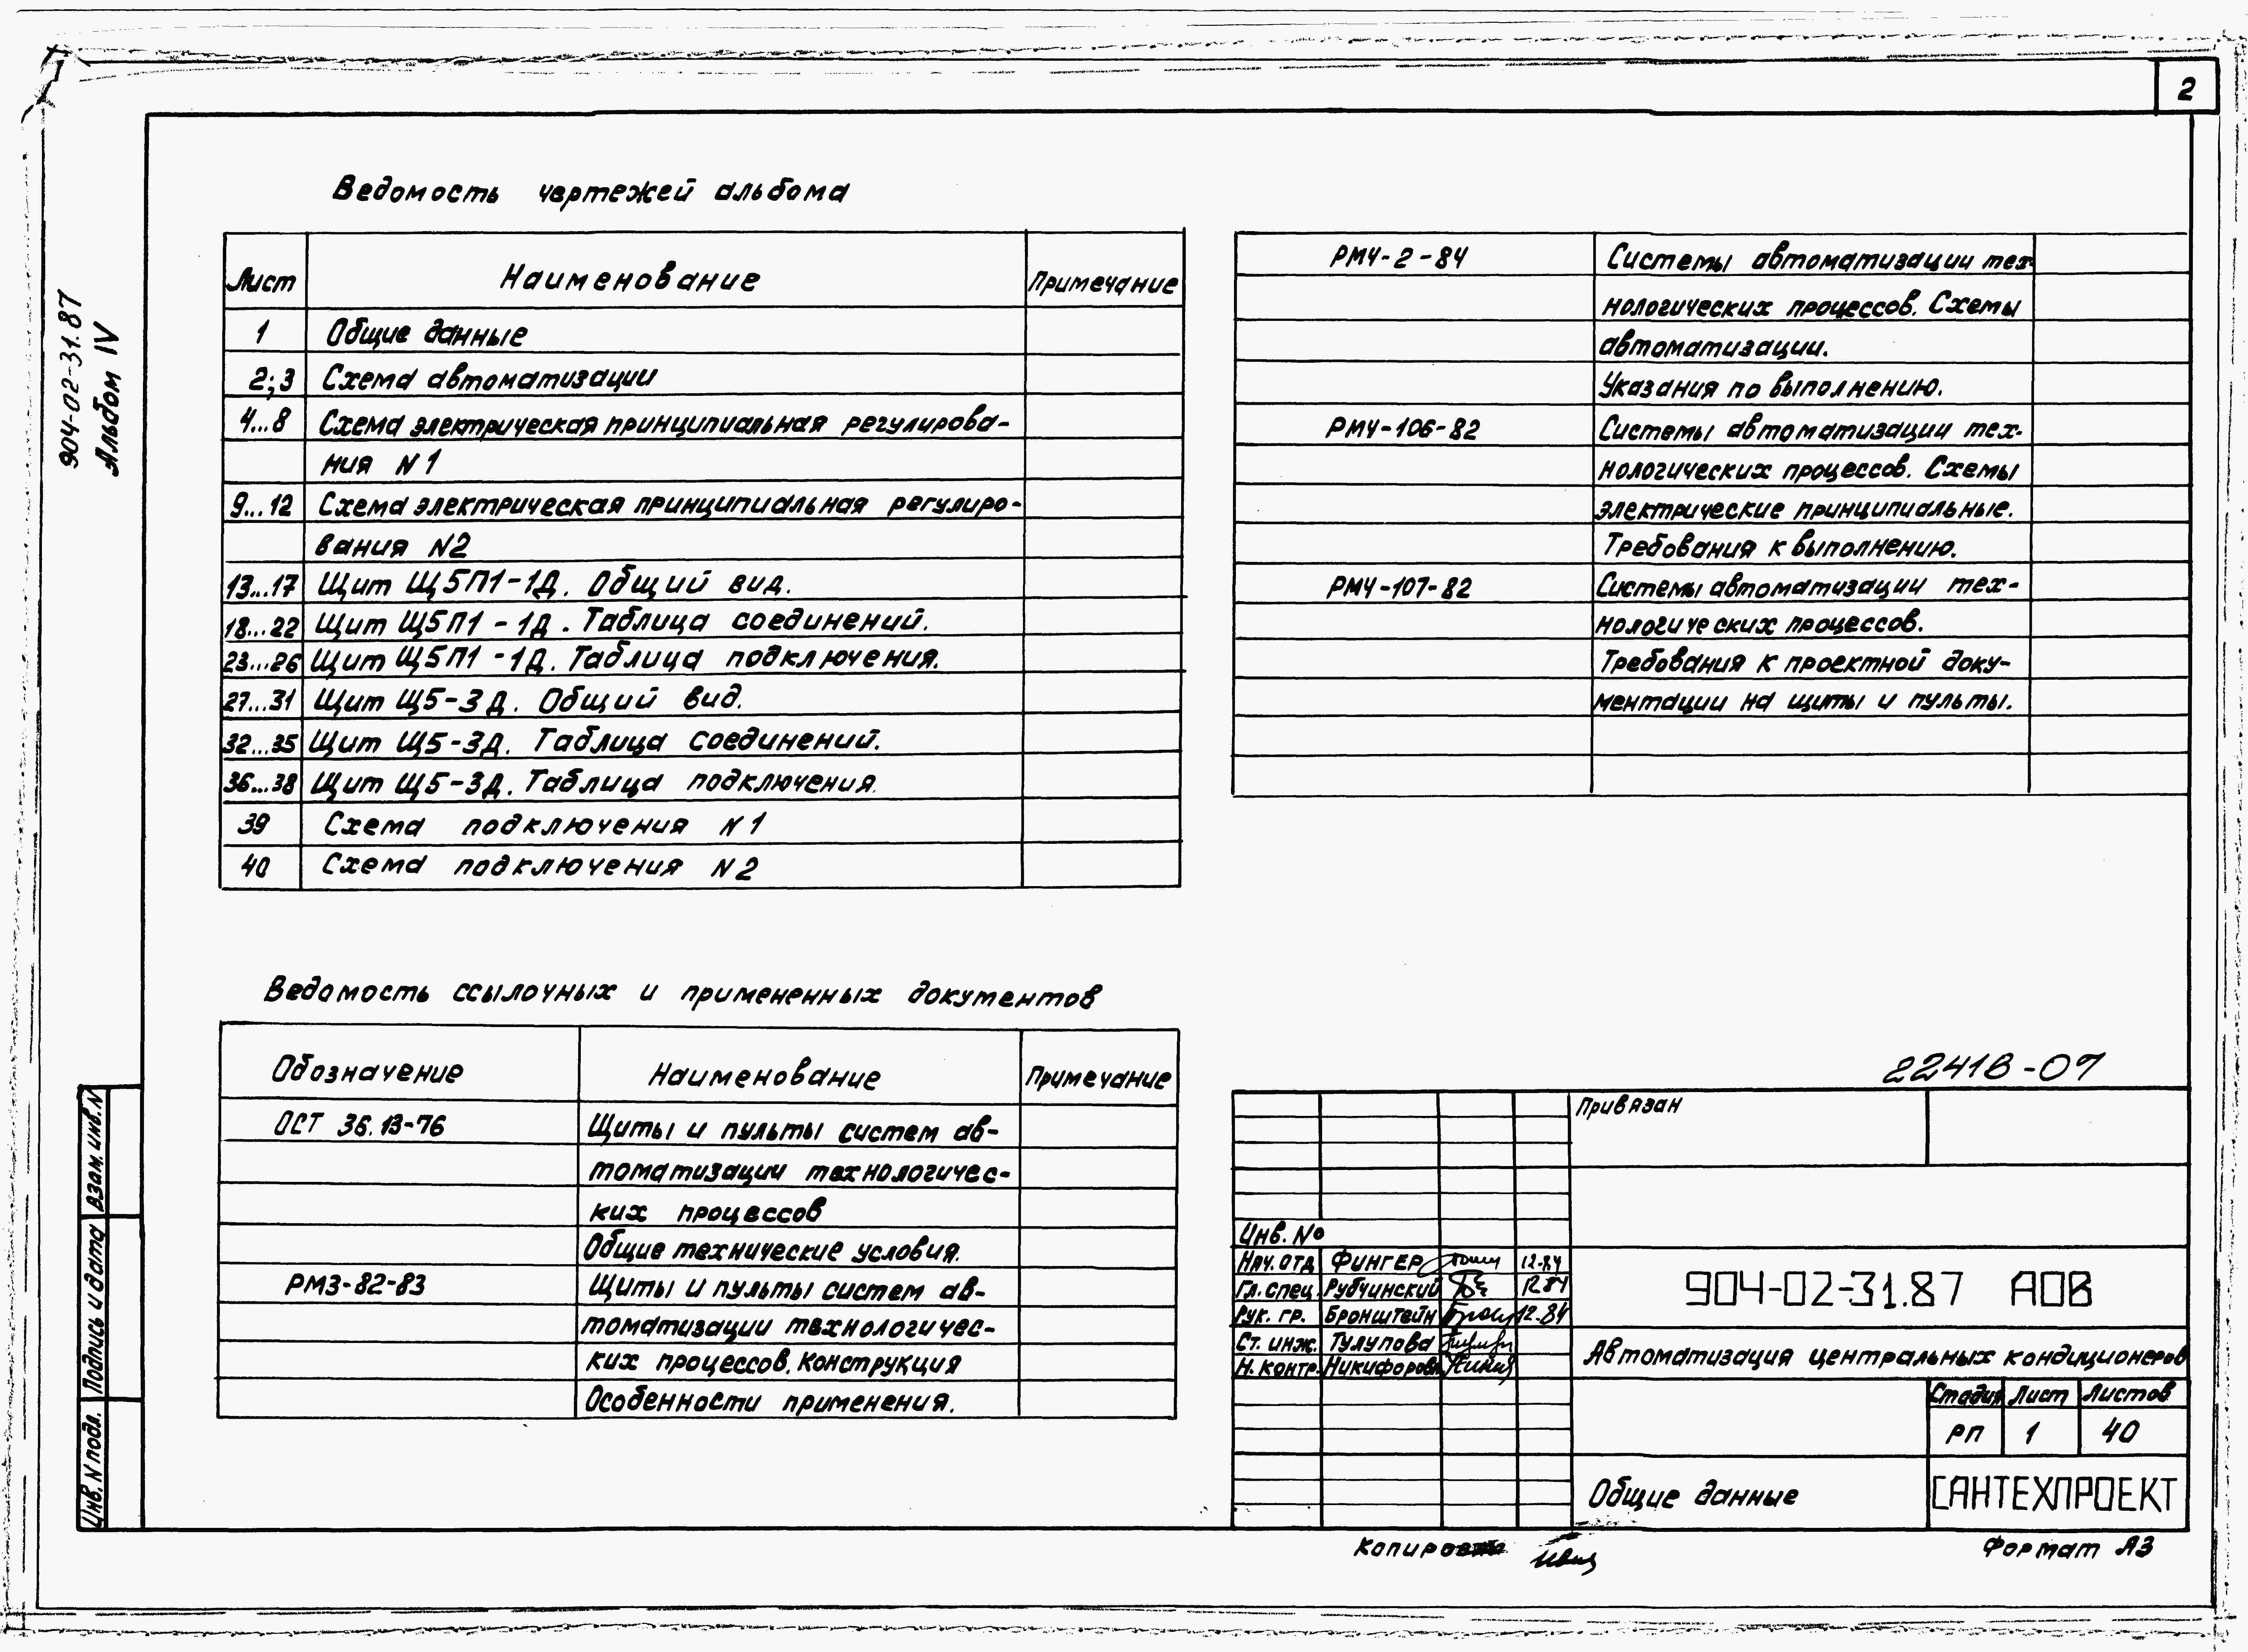 2
904-02-31.87
Альбом IV
Ведомость чертежей альбома
Лист Наименование Примечание
1 Общие данные
2;3 Схема автоматизации
4...8 Схема электрическая принципиальная регулирова-
ния N1
9...12 Схема электрическая принципиальная регулиро-
вания N2
13...17 Щит Щ5П1-1Д. Общий вид.
18...22 Щит Щ5П1-1Д. Таблица соединений.
23...26 Щит Щ5П1-1Д. Таблица подключения.
27...31 Щит Щ5-3Д. Общий вид.
32...35 Щит Щ5-3Д. Таблица соединений.
36...38 Щит Щ5-3Д. Таблица подключения.
39 Схема подключения N1
40 Схема подключения N2
Ведомость ссылочных и примененных документов
Обозначение Наименование Примечание
ОСТ 36.13-76 Щиты и пульты систем ав-
томатизации технологичес-
ких процессов
Общие технические условия.
РМ3-82-83 Щиты и пульты систем ав-
томатизации технологичес-
ких процессов. Конструкция
Особенности применения.
РМ4-2-84 Системы автоматизации тех-
нологических процессов. Схемы
автоматизации.
Указания по выполнению.
РМ4-106-82 Системы автоматизации тех-
нологических процессов. Схемы
электрические принципиальные.
Требования к выполнению.
РМ4-107-82 Системы автоматизации тех-
нологических процессов.
Требования к проектной доку-
ментации на щиты и пульты.
22418-07
Привязан
Инв. №
Нач. отд Фингер 12.84
Гл. спец. Рубчинский 12.84
Рук. гр. Бронштейн 12.84
Ст. инж. Тулупова
Н. контр. Никифорова
904-02-31.87 АОВ
Автоматизация центральных кондиционеров
Стадия Лист Листов
РП 1 40
Общие данные
САНТЕХПРОЕКТ
Формат А3
Взам. инв. N
Подпись и дата
Инв. N подл.